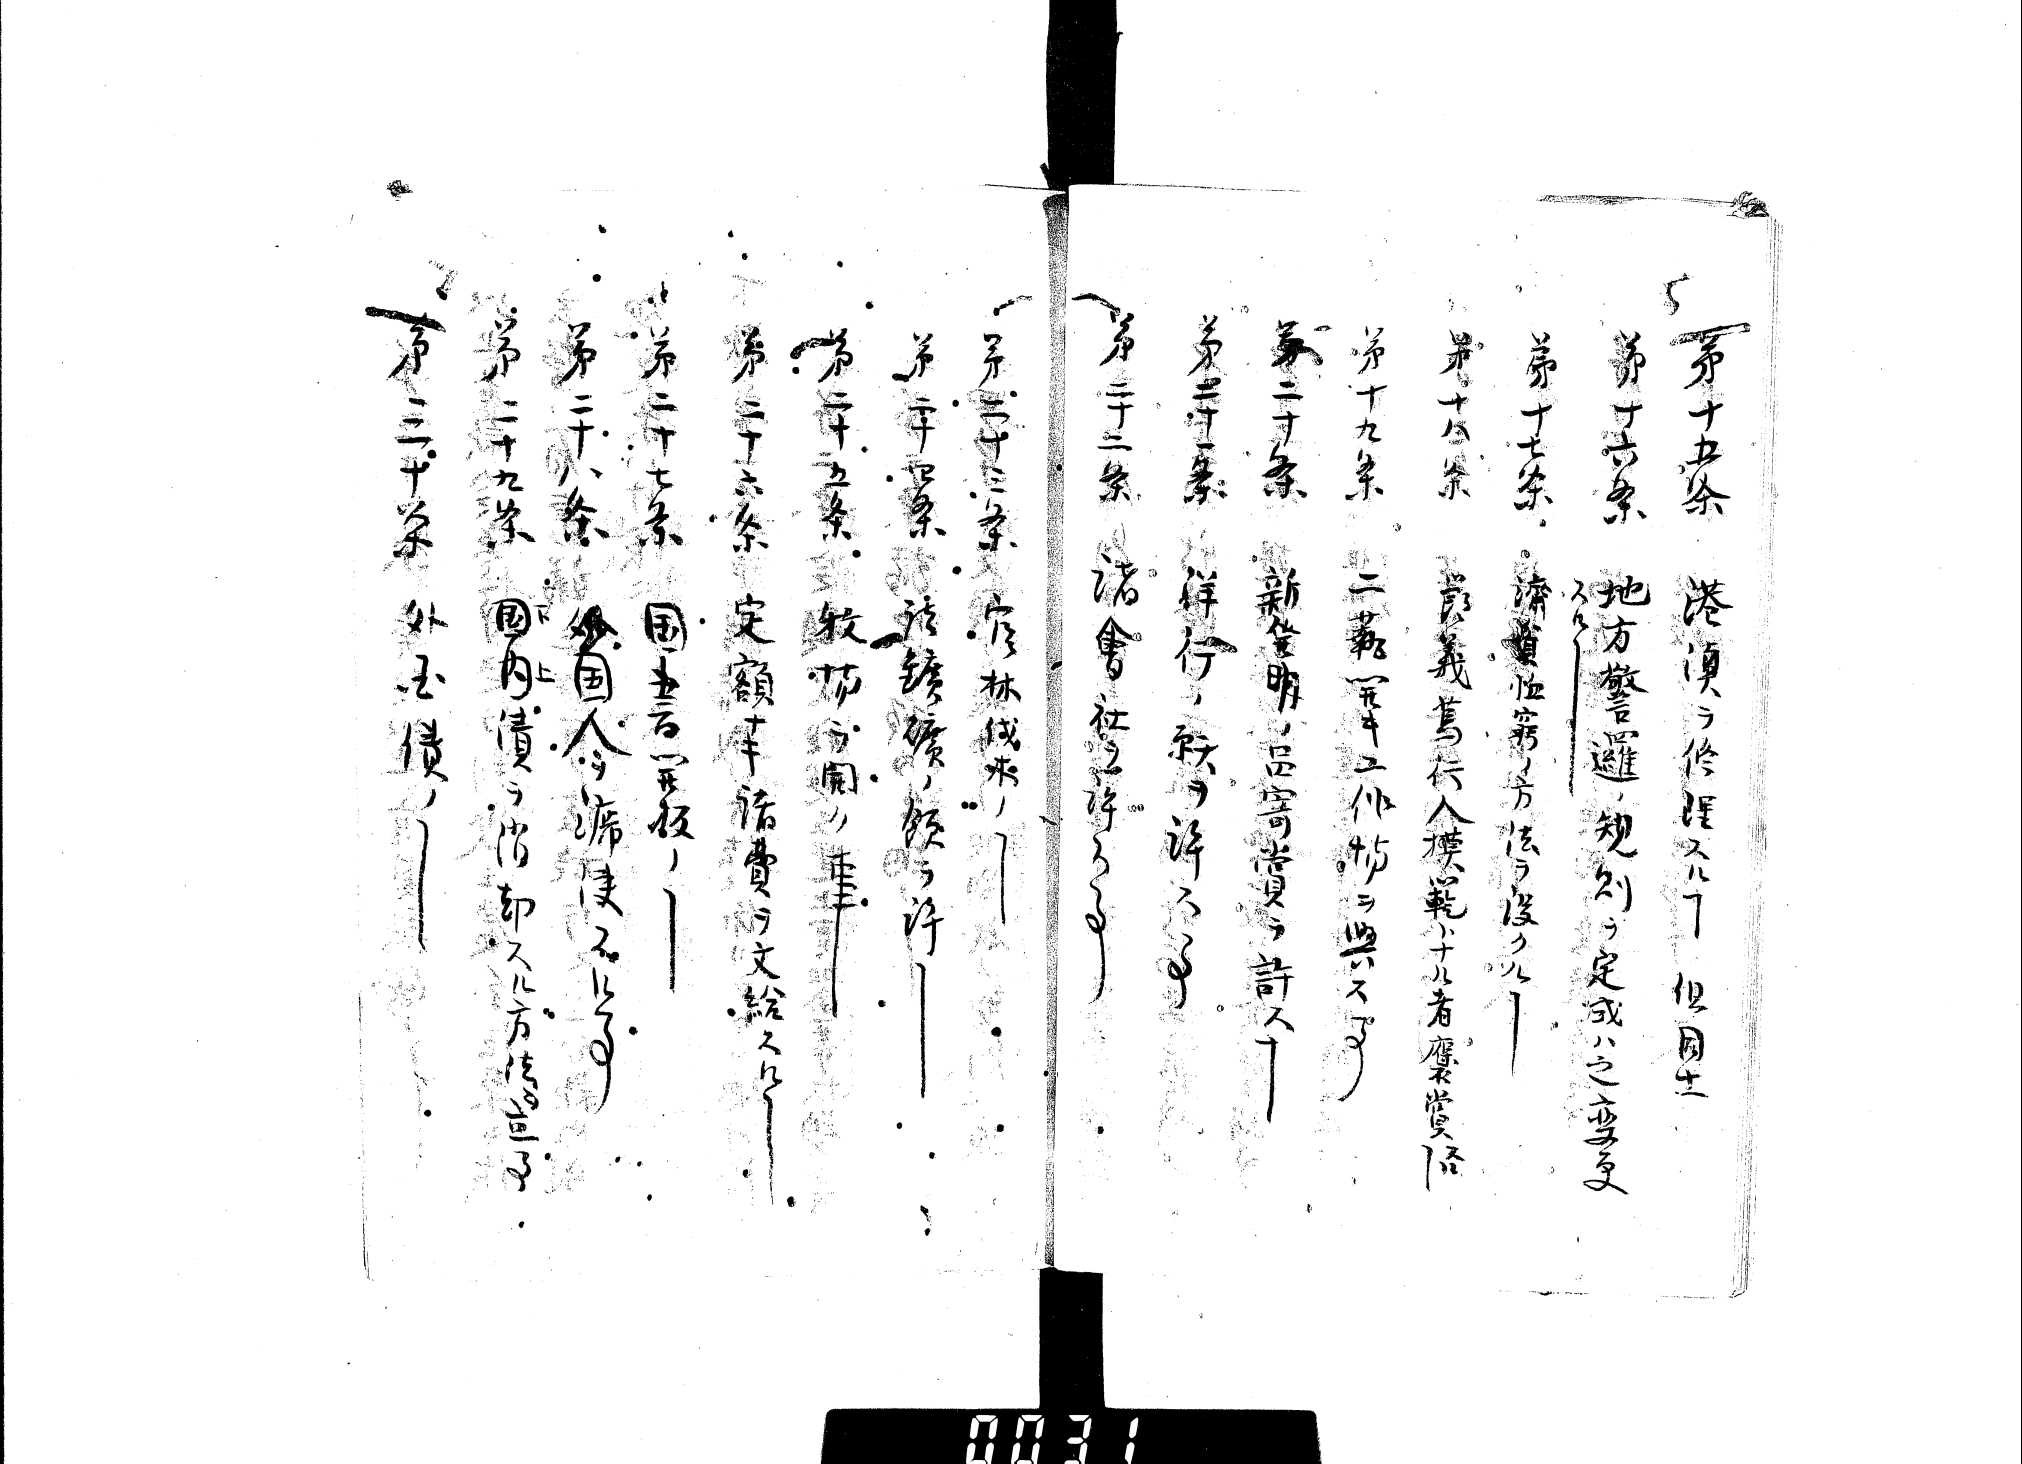 第十五条 港湾ヲ修理スルヿ 但国土
第十六条 地方警邏ノ規則ヲ定或ハ之変更
スルヿ
第十七条 済貧恤窮ノ方法ヲ設クルヿ
第十八条 節義篤行人模範トナル者褒賞
第十九条 工藝開キ工作場ヲ興ス事
第二十条 新発明ノ品寄賞ヲ許スヿ
第二十一条 祥行ノ ヲ許ス事
第二十二条 諸會社ヲ許ス事
第二十三条 官林伐木ノヿ
第二十四条 諸鑛礦ノ願ヲ許ヿ
第二十五条 牧場ヲ開ノ事
第二十六条 定額ナキ諸費ヲ支給スルヿ
第二十七条 国 開板ノヿ
第二十八条 外国人ヲ 使スル事
第二十九条 國内債ヲ消却スル方法 事
下 上
第三十条 外国債ノヿ
0031